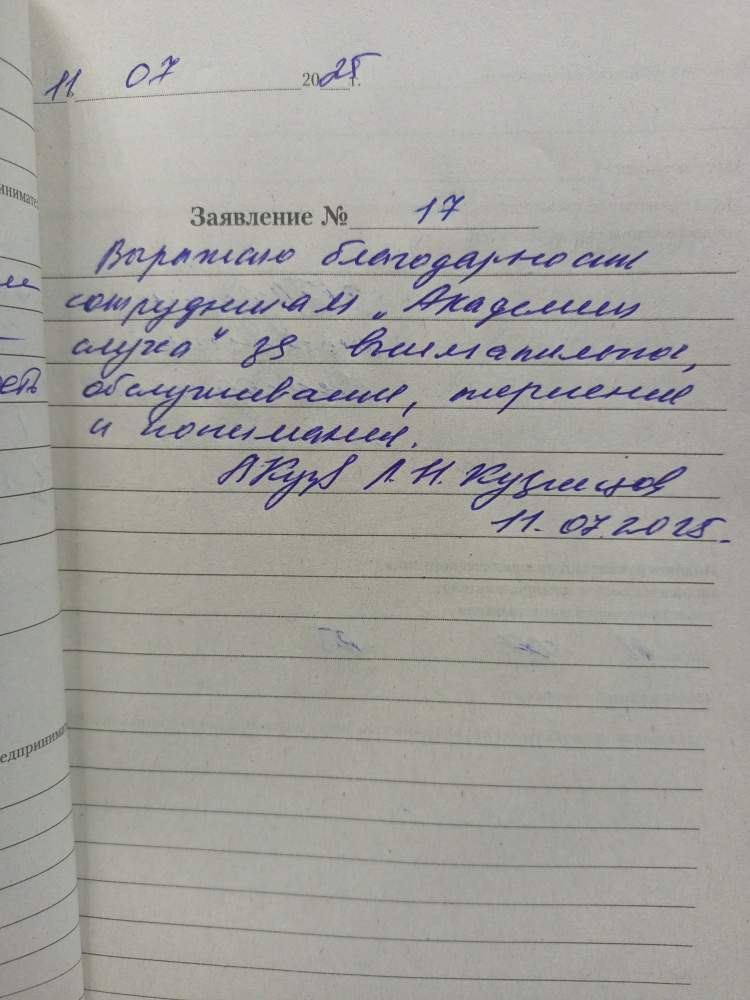 11 07 2025 г.
Заявление № 17
Выражаю благодарность
сотрудникам „Академии
слуха" за внимательное,
обслуживание, терпение
и понимание.
АКузв Л. Н. Кузнецов
11.07.2025.
инимате
сть
едпринимат